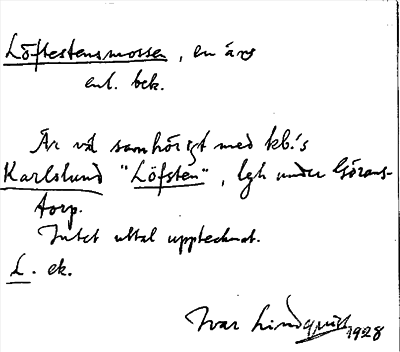 Löftestensmossen, en äng
enl. bek.
Är väl samhörigt med kb:s
Karlslund "Löfsten", lgh under Görans-
torp.
Intet uttal upptecknat.
L. ek.
Ivar Lindquist 1928